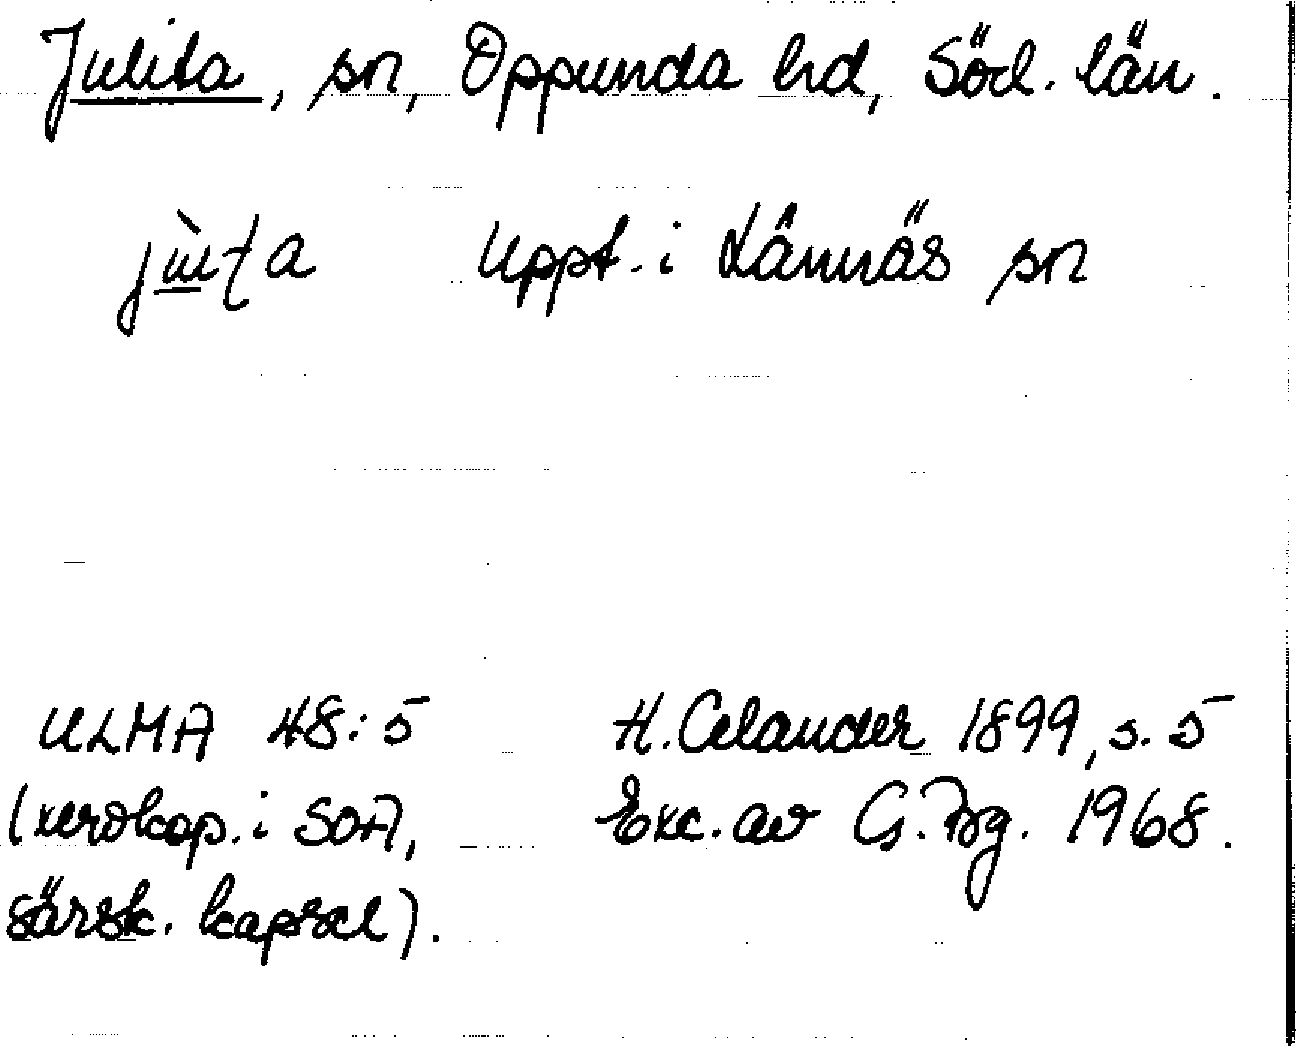 Julita, sn, Oppunda hd, Söd. län.
Uppt. i Lännäs sn
ULMA 48:5 H. Celander 1899, s. 5
(xerokop. i SOA, Exc. av G. Bg. 1968.
särsk. kapsel).